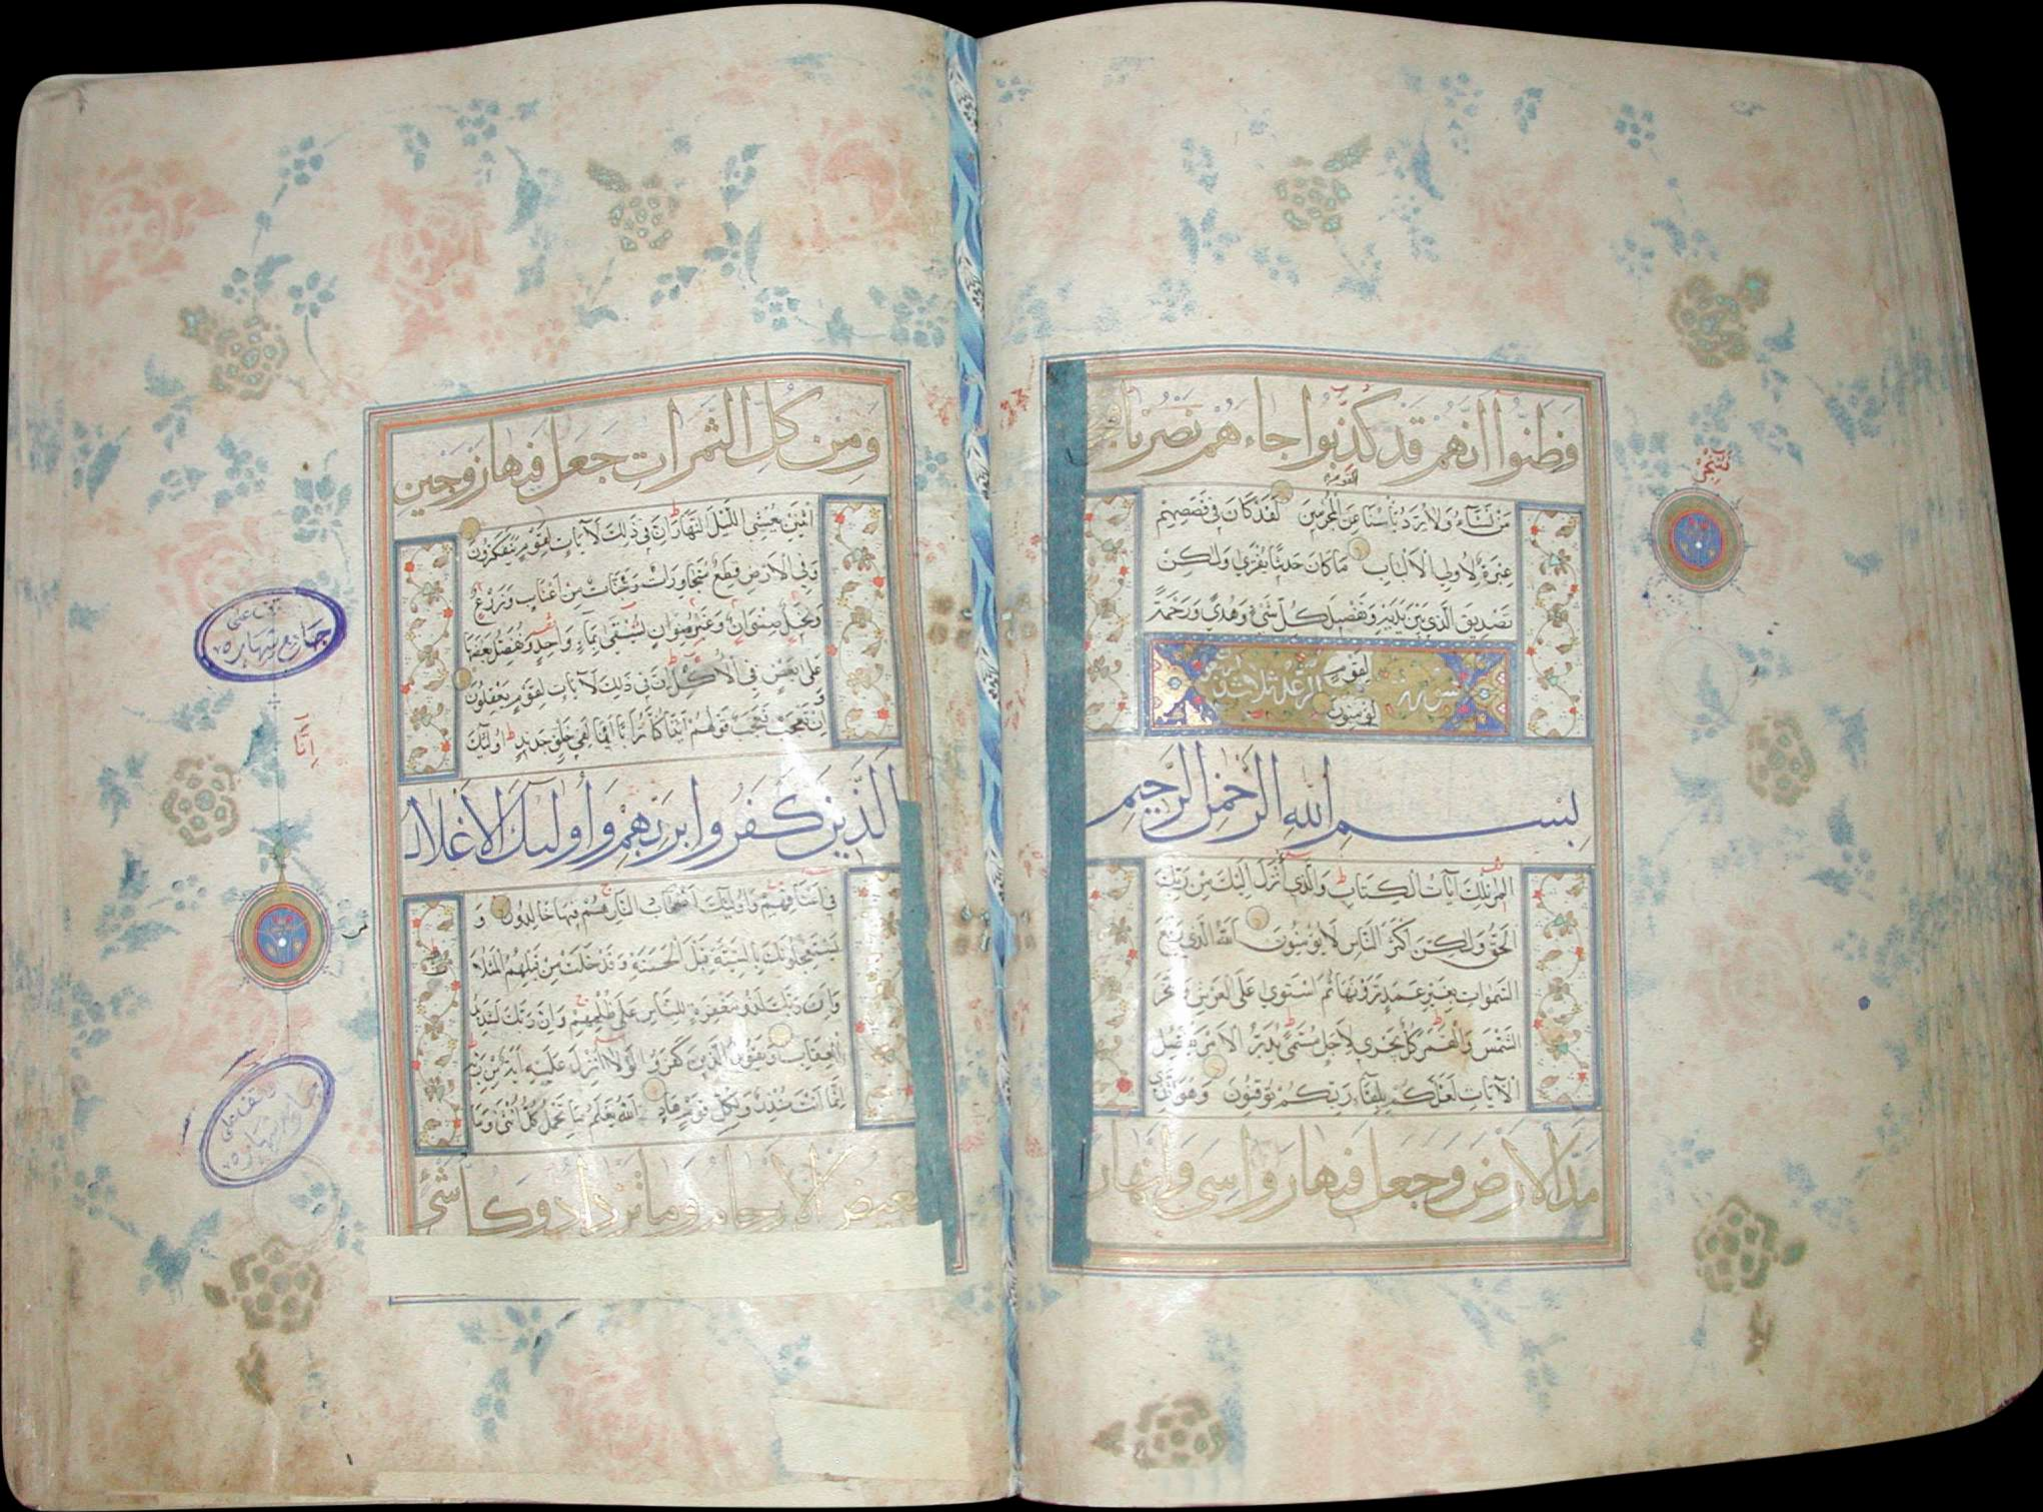 فَظَنُّوا انَّهُمْ قَدْ كُذِبُوا جَاءَهُمْ نَصْرُنَا فَنُجِّيَ
مَنْ نَشَاءُ وَلَا يُرَدُّ بَأْسُنَا عَنِ الْقَوْمِ الْمُجْرِمِينَ لَقَدْ كَانَ فِي قَصَصِهِمْ
عِبْرَةٌ لِأُولِي الْأَلْبَابِ مَا كَانَ حَدِيثًا يُفْتَرَى وَلَكِنْ
تَصْدِيقَ الَّذِي بَيْنَ يَدَيْهِ وَتَفْصِيلَ كُلِّ شَيْءٍ وَهُدًى وَرَحْمَةً
لِقَوْمٍ
يُؤْمِنُونَ
سورة الرعد ثلاث
بِسْمِ اللهِ الرَّحْمٰنِ الرَّحِيمِ
المر تِلْكَ آيَاتُ الْكِتَابِ وَالَّذِي أُنْزِلَ إِلَيْكَ مِنْ رَبِّكَ
الْحَقُّ وَلَكِنَّ أَكْثَرَ النَّاسِ لَا يُؤْمِنُونَ اللهُ الَّذِي رَفَعَ
السَّمٰوَاتِ بِغَيْرِ عَمَدٍ تَرَوْنَهَا ثُمَّ اسْتَوَى عَلَى الْعَرْشِ وَسَخَّرَ
الشَّمْسَ وَالْقَمَرَ كُلٌّ يَجْرِي لِأَجَلٍ مُسَمًّى يُدَبِّرُ الْأَمْرَ يُفَصِّلُ
الْآيَاتِ لَعَلَّكُمْ بِلِقَاءِ رَبِّكُمْ تُوقِنُونَ وَهُوَ الَّذِي
مَدَّ الْأَرْضَ وَجَعَلَ فِيهَا رَوَاسِيَ وَأَنْهَارًا
وَمِنْ كُلِّ الثَّمَرَاتِ جَعَلَ فِيهَا زَوْجَيْنِ
اثْنَيْنِ يُغْشِي اللَّيْلَ النَّهَارَ إِنَّ فِي ذَلِكَ لَآيَاتٍ لِقَوْمٍ يَتَفَكَّرُونَ
وَفِي الْأَرْضِ قِطَعٌ مُتَجَاوِرَاتٌ وَجَنَّاتٌ مِنْ أَعْنَابٍ وَزَرْعٌ
وَنَخِيلٌ صِنْوَانٌ وَغَيْرُ صِنْوَانٍ يُسْقَى بِمَاءٍ وَاحِدٍ وَنُفَضِّلُ بَعْضَهَا
عَلَى بَعْضٍ فِي الْأُكُلِ إِنَّ فِي ذَلِكَ لَآيَاتٍ لِقَوْمٍ يَعْقِلُونَ
وَإِنْ تَعْجَبْ فَعَجَبٌ قَوْلُهُمْ أَئِذَا كُنَّا تُرَابًا أَئِنَّا لَفِي خَلْقٍ جَدِيدٍ أُولَئِكَ
الَّذِينَ كَفَرُوا بِرَبِّهِمْ وَأُولَئِكَ الْأَغْلَالُ
فِي أَعْنَاقِهِمْ وَأُولَئِكَ أَصْحَابُ النَّارِ هُمْ فِيهَا خَالِدُونَ وَ
يَسْتَعْجِلُونَكَ بِالسَّيِّئَةِ قَبْلَ الْحَسَنَةِ وَقَدْ خَلَتْ مِنْ قَبْلِهِمُ الْمَثُلَاتُ
وَإِنَّ رَبَّكَ لَذُو مَغْفِرَةٍ لِلنَّاسِ عَلَى ظُلْمِهِمْ وَإِنَّ رَبَّكَ لَشَدِيدُ
الْعِقَابِ وَيَقُولُ الَّذِينَ كَفَرُوا لَوْلَا أُنْزِلَ عَلَيْهِ آيَةٌ مِنْ رَبِّهِ
إِنَّمَا أَنْتَ مُنْذِرٌ وَلِكُلِّ قَوْمٍ هَادٍ اللهُ يَعْلَمُ مَا تَحْمِلُ كُلُّ أُنْثَى وَمَا
تَغِيضُ الْأَرْحَامُ وَمَا تَزْدَادُ وَكُلُّ شَيْءٍ